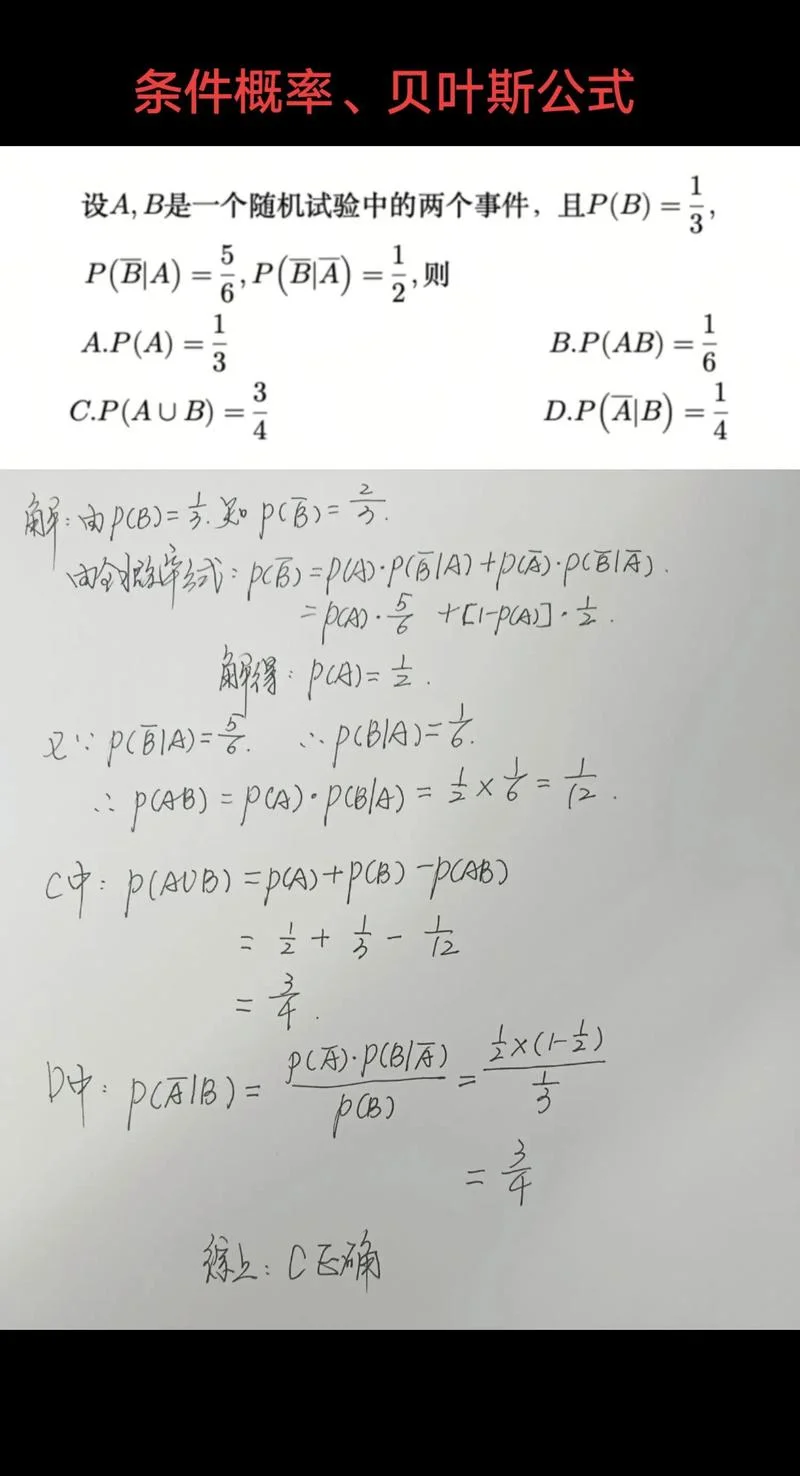 条件概率、贝叶斯公式
设A, B是一个随机试验中的两个事件，且P(B) = 1/3,
P(B̅|A) = 5/6, P(B̅|A̅) = 1/2, 则
A.P(A) = 1/3 B.P(AB) = 1/6
C.P(A ∪ B) = 3/4 D.P(A̅|B) = 1/4
解：由P(B) = 1/3. 知 P(B̅) = 2/3.
由全概率公式：P(B̅) = P(A)·P(B̅|A) + P(A̅)·P(B̅|A̅).
= P(A)·5/6 + [1-P(A)]·1/2.
解得：P(A) = 1/2.
又∵ P(B̅|A) = 5/6. ∴ P(B|A) = 1/6.
∴ P(AB) = P(A)·P(B|A) = 1/2 × 1/6 = 1/12.
C中：P(A∪B) = P(A) + P(B) - P(AB)
= 1/2 + 1/3 - 1/12
= 3/4.
D中：P(A̅|B) = P(A̅)·P(B|A̅)/P(B) = 1/2×(1-1/2)/(1/3)
= 3/4
综上：C正确